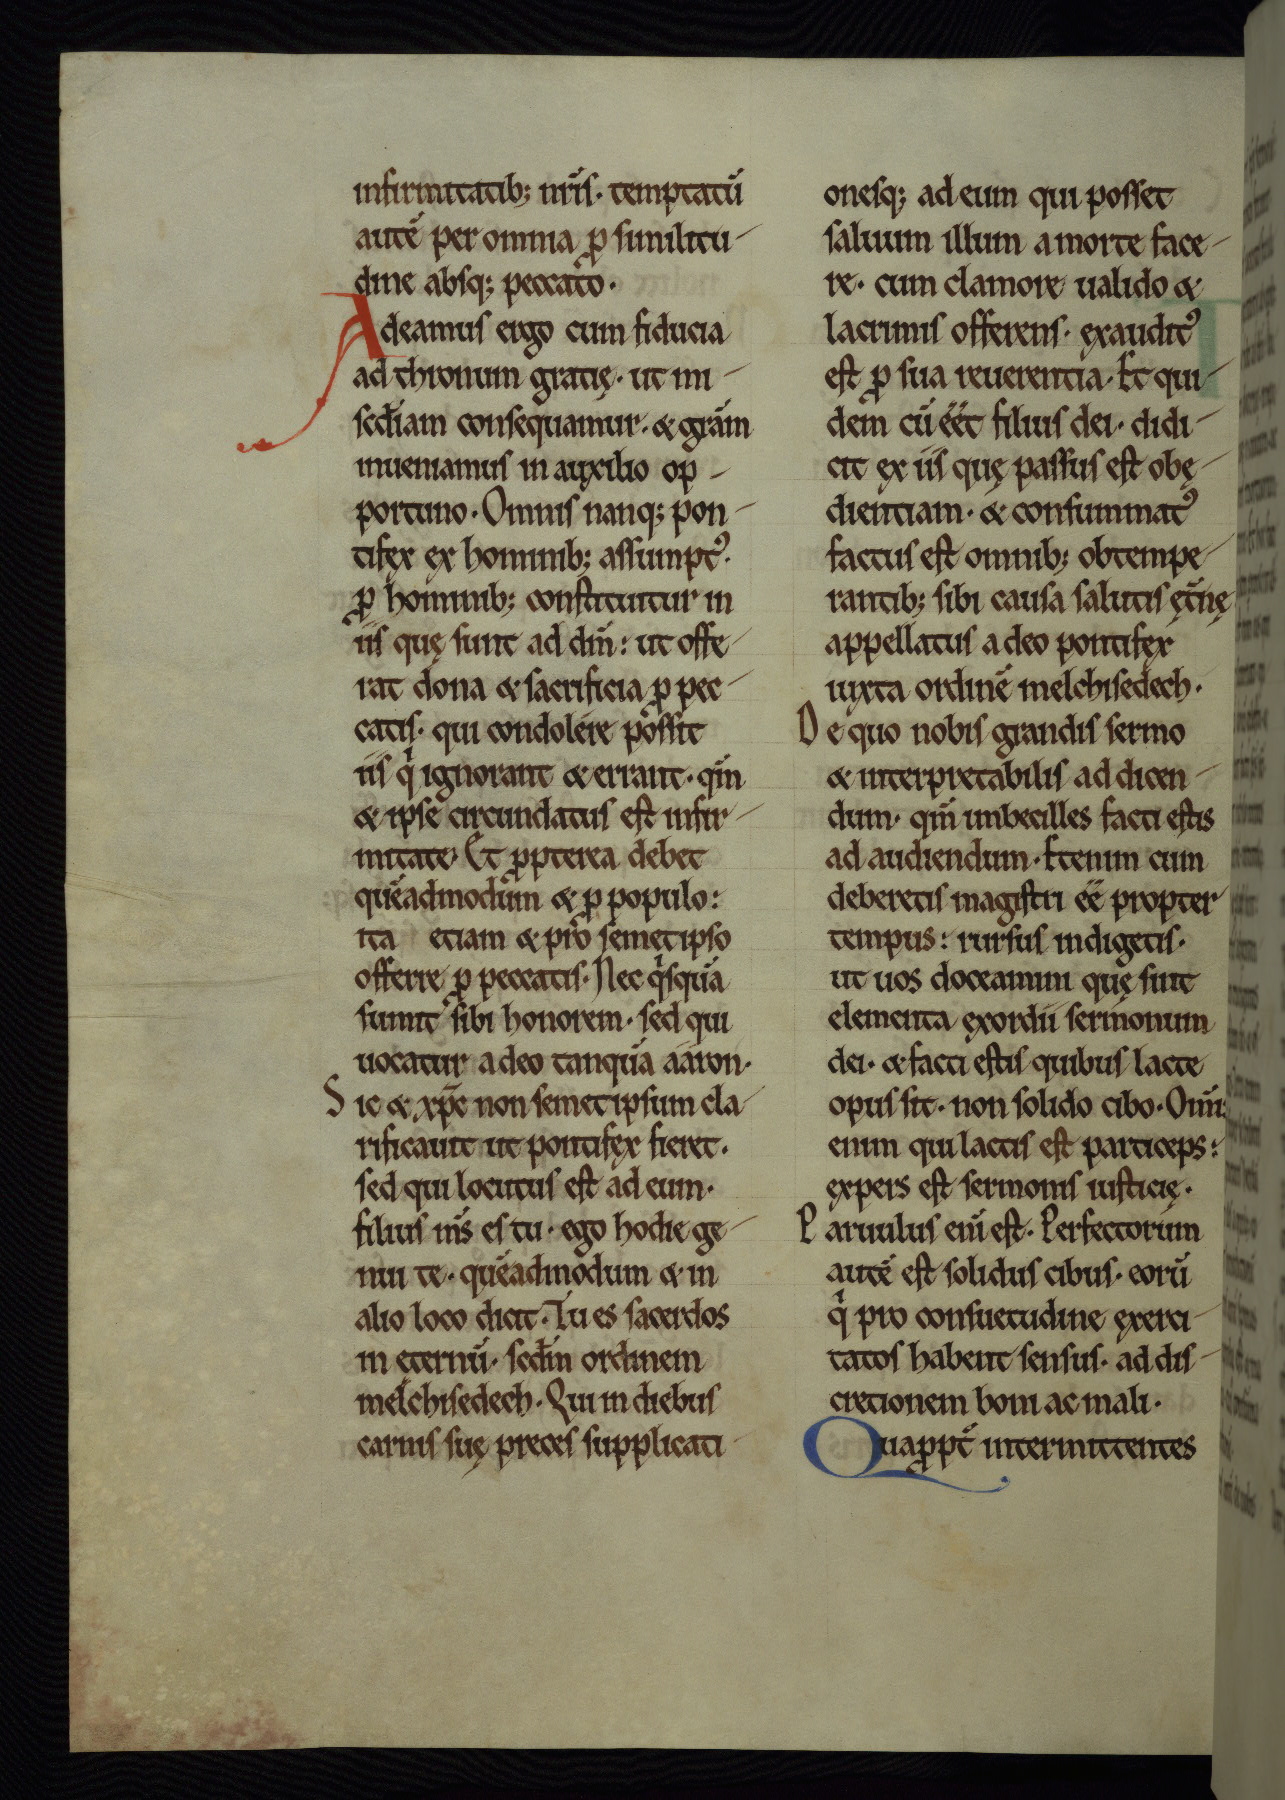 infirmitatib; nr̄is· temptatū
autē per omnia ꝓ similitu-
dine absq; peccato·
Adeamus ergo cum fiducia
ad thronum gratię· ut mi-
sc̄diam consequamur· & grām
inueniamus in auxilio op-
portuno· Omnis nanq; pon-
tifex ex hominib; assumptꝰ·
ꝓ hominib; constituitur in
iis quę sunt ad dm̄: ut offe-
rat dona & sacrificia ꝓ pec-
catis· qui condolere possit
iis qͥ ignorant & errant· qm̄
& ipse circundatus est infir-
mitate· Et ꝓpterea debet
quēadmodum & ꝓ populo:
ita etiam & pro semetipso
offerre ꝓ peccatis· Nec qͥsquā
sumit sibi honorem· sed qui
uocatur a deo tanquā aaron·
Sic & xpc̄ non semetipsum cla-
rificauit ut pontifex fieret·
sed qui locutus est ad eum·
filius ms̄ es tu· ego hodie ge-
nui te· quēadmodum & in
alio loco dicit· Tu es sacerdos
in ęternū· scd̄m ordinem
melchisedech· Qui in diebus
carnis suę preces supplicati-
onesq; ad eum qui posset
saluum illum a morte face-
re· cum clamore ualido &
lacrimis offerens· exauditꝰ
est ꝓ sua reuerentia· Et qui-
dem cū eēt filius dei· didi-
cit ex iis quę passus est obę-
dientiam· & consummatꝰ
factus est omnib; obtempe-
rantib; sibi causa salutis ęt̄nę
appellatus a deo pontifex
iuxta ordinē melchisedech·
De quo nobis grandis sermo
& interpretabilis ad dicen-
dum· qm̄ imbecilles facti estis
ad audiendum· Etenim cum
deberetis magistri eē propter
tempus: rursus indigetis·
ut uos doceamini quę sint
elementa exordii sermonum
dei· & facti estis quibus lacte
opus sit· non solido cibo· Omīs
enim qui lactis est particeps:
expers est sermonis iusticię·
Paruulus enī est· Perfectorum
autē est solidus cibus· eorū
qͥ pro consuetudine exerci-
tatos habent sensus· ad dis-
cretionem boni ac mali·
Quaꝓpt̄ intermittentes